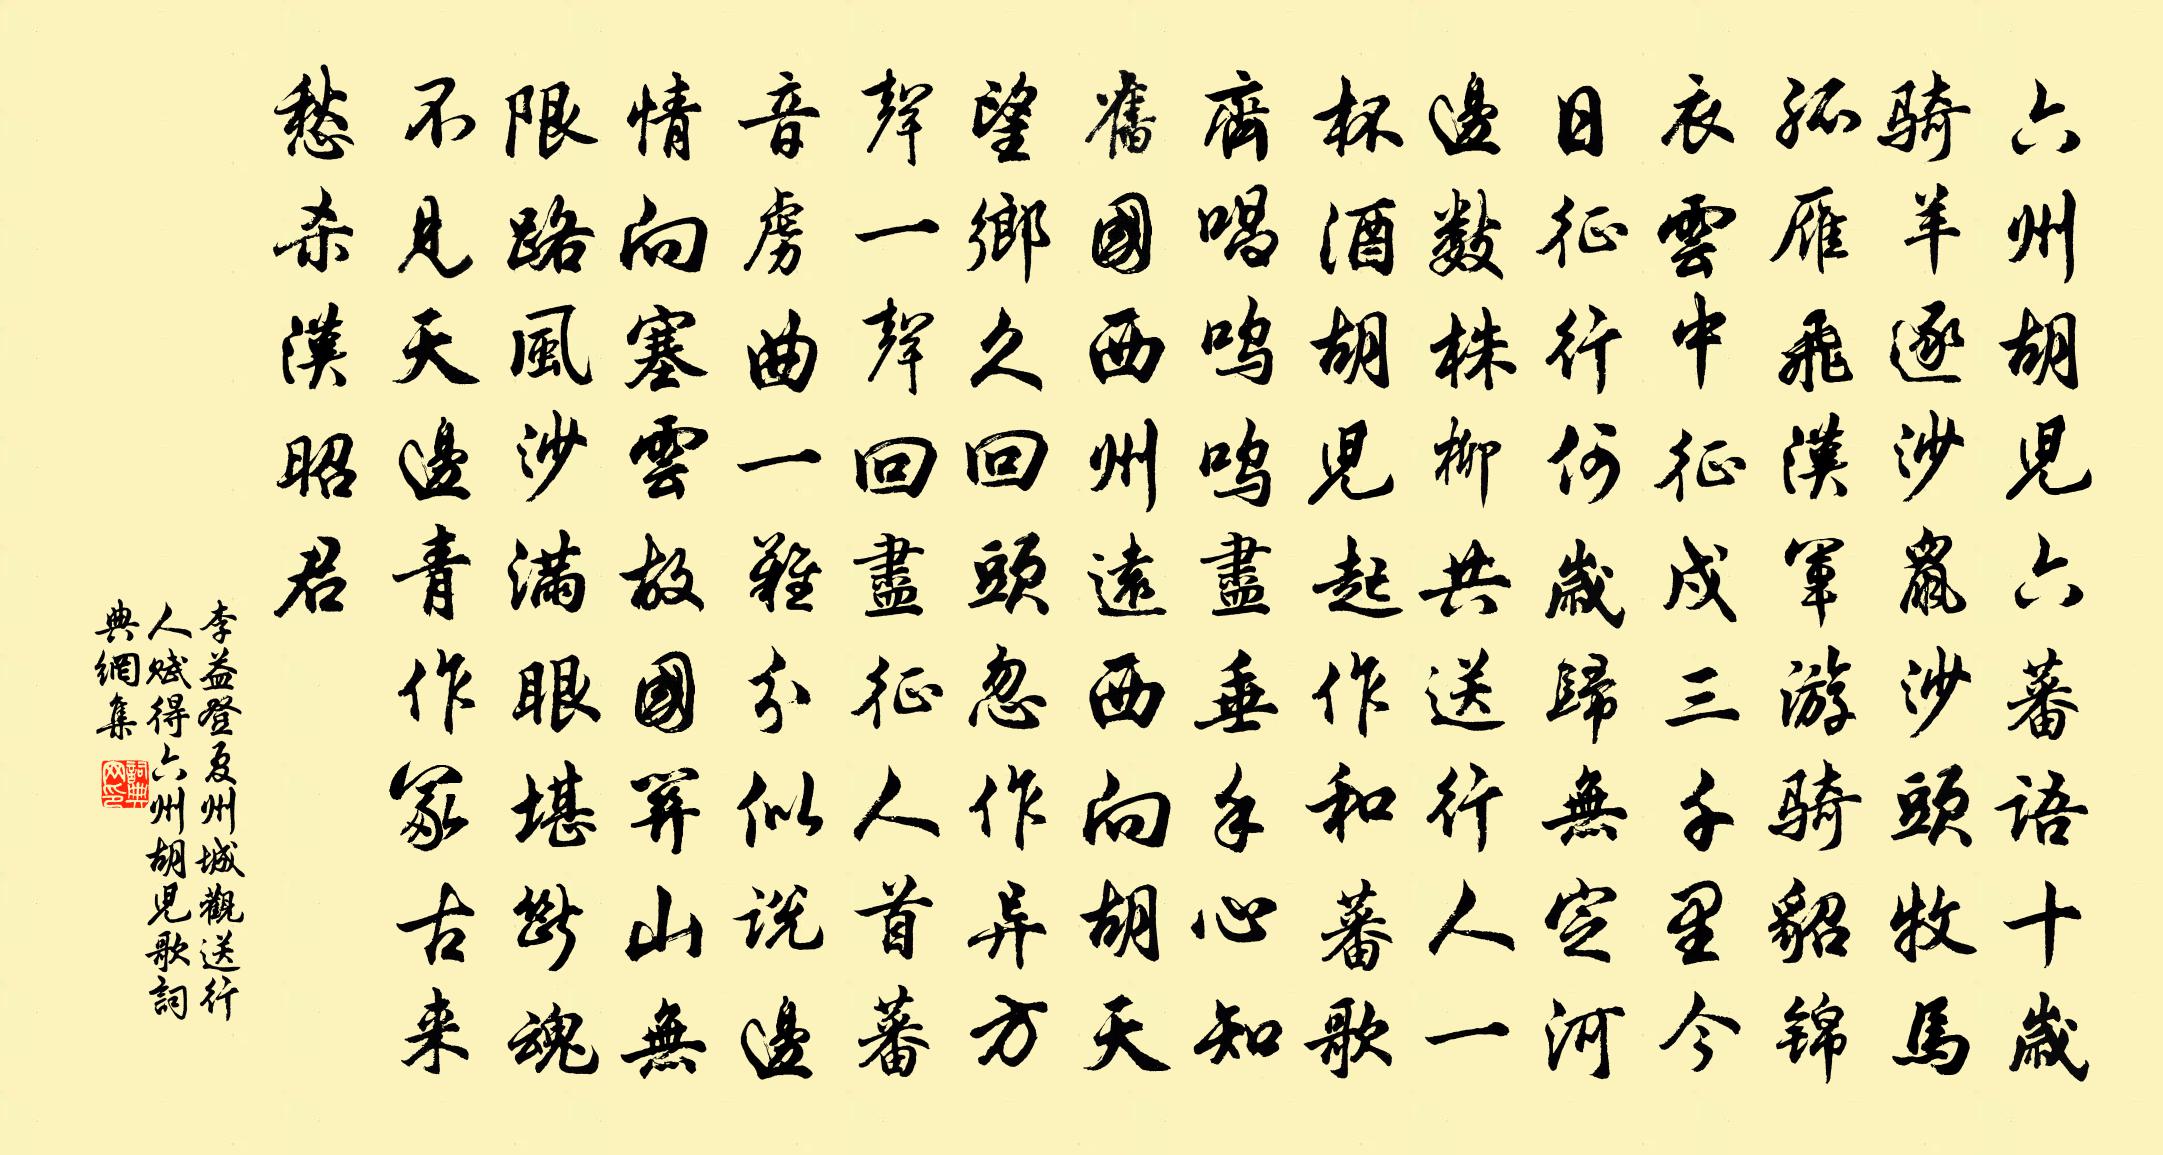 六州胡兒六蕃語十歲
騎羊逐沙鼠沙頭牧馬
孤雁飛漢軍游騎貂錦
衣雲中征戍三千里今
日征行何歲歸無定河
邊數株柳共送行人一
杯酒胡兒起作和蕃歌
齊唱嗚嗚盡垂手心知
舊國西州遠西向胡天
望鄉久回頭忽作异方
聲一聲回盡征人首蕃
音虜曲一難分似說邊
情向塞雲故國關山無
限路風沙滿眼堪斷魂
不見天邊青作冢古来
愁杀漢昭君
李益登夏州城觀送行
人賦得六州胡兒歌詞
典網集
詞典网印